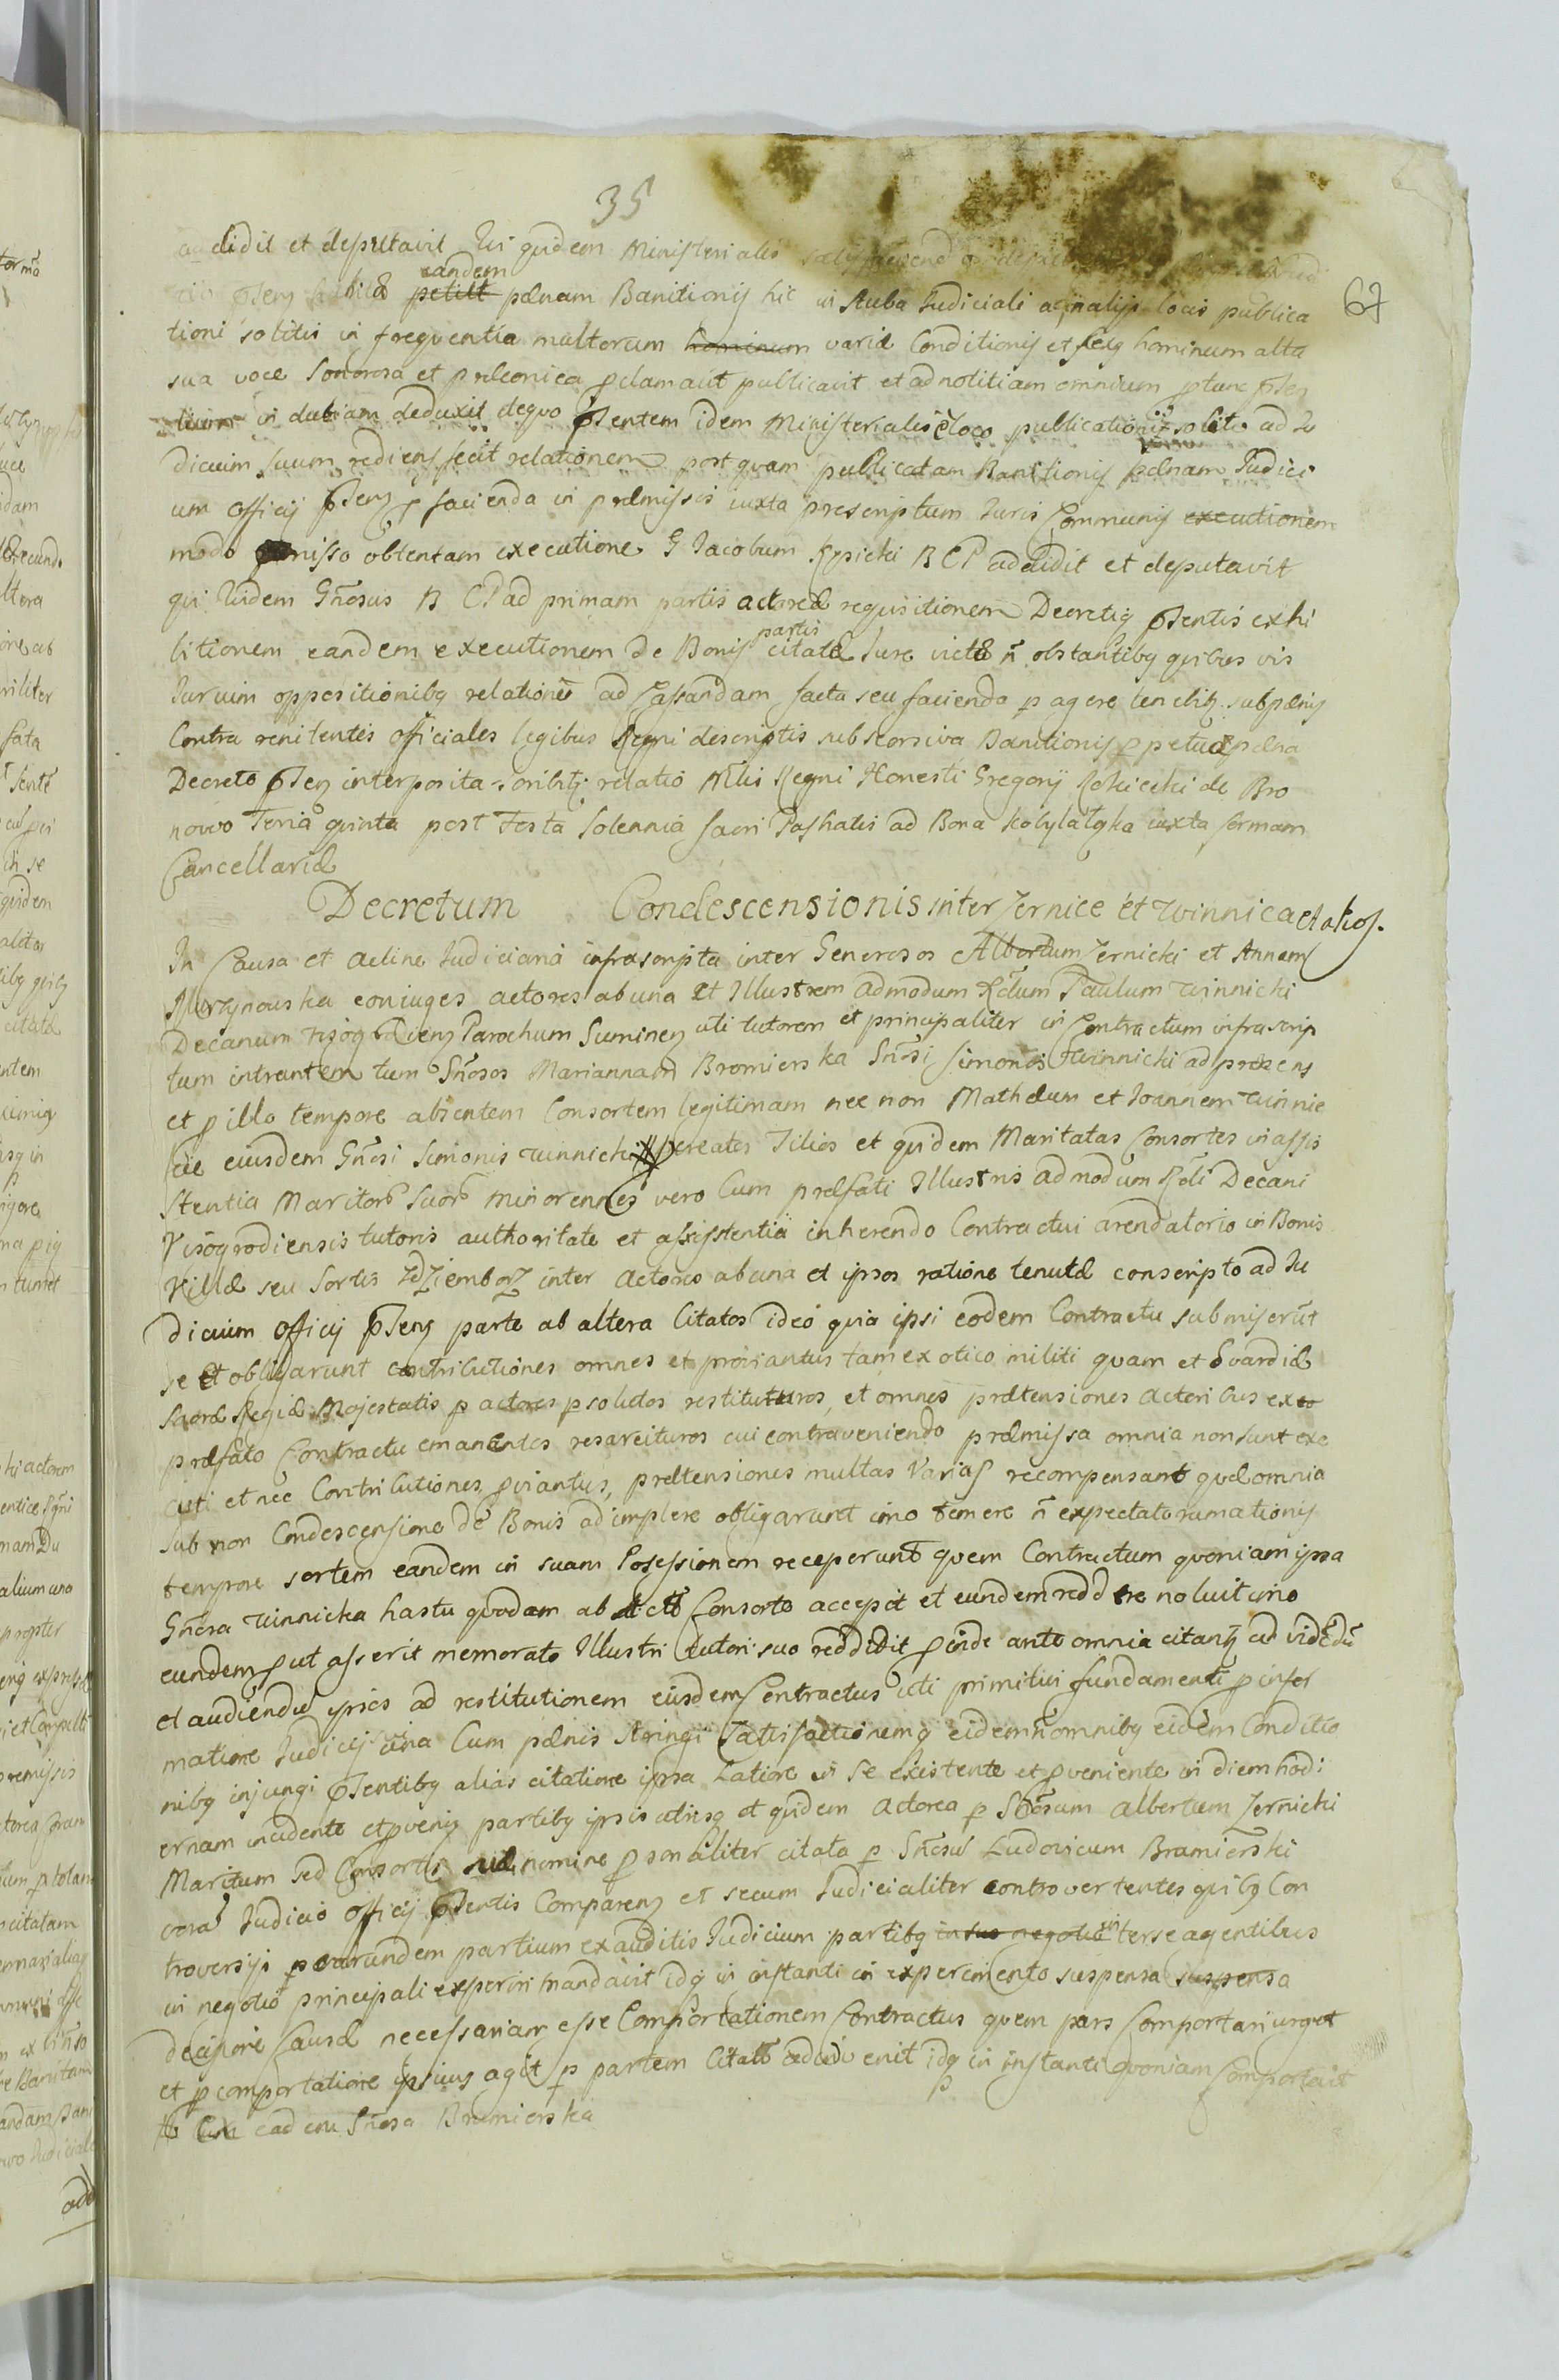 35
addidit et deputavit Qui quidem Ministerialis satisfaciendo
67
eandem
petitt pœnam Banitionis hic in Stuba Judiciali ac in alijs locis publica
tioni solitis in frequentia multorum hominum variæ Conditionis et sexg hominum alta
sua voce Sonorosa et præconica pclamavit publicavit et ad notitiam omnium ptunc pſen
tium in dubiam deduxit dequo pſentem idem Ministerialis è loco publicationis solito ad Ju
dicium suum rediens fecit relationem post quam publicatam Banitionis pœnam Judici
um Officij pſens p facienda in præmissis iuxta prescriptum Juris Communis executionem
modo præmisso obtentam executione G Jacobum Kępicki B C P addidit et deputavit
qui quidem Gñosus B CP ad primam partis actoreæ requisitionem Decretiq pſentis exhi
partis
bitionem eandem executionem de Bonis citatæ Jure victæ ñ obstantibg quibus vis
Jurium oppositionibg relatione ad Cassandam facta seu facienda p agere tenebitz sub pænis
Contra renitentes officiales legibus Regni descriptis subseorsiva Banitionis ppetuæ pæna
Decreto pſens interposita scribitz relatio Mlis Regni Honesti Gregorij Rokicki de Bro
nowo Feria quinta post Festa Solennia Sacri Paschatis ad Bona Kobylałąka iuxta formam
Cancellariæ
Decretum Condescensionis inter Zernice et Winnica citatos.
In Causa et actione Judiciaria infrascripta inter Generosos Albertum Zernicki et Annam
coniuges actores ab una et Illustrem admodum Rdum Paulum Winnicki
Decanum Visogrodiens Parochum Suminens uti tutorem et principaliter in Contractum infrascrip
tum intrantem tum Gñosos Mariannam Bromierska Gñosi Simonis Winnicki ad præsens
et p illo tempore absentem Consortem legitimam nec non Mathæum et Joannem Winnic
cie eiusdem Gñosi Simonis Winnicki pcreatos Filios et quidem Maritatas Consortes in assis
stentia Maritorũ Suorũ minorennes vero Cum præfati Illustris admodum Rdi Decani
Visogrodiensis tutoris authoritate et assistentia inherendo Contractui arendatorio in Bonis
Villæ seu Sortis Zdziemborz inter Actores ab una et ipsos ratione tenutæ conscripto ad Ju
dicium officij pſens parte ab altera Citatos ideo quia ipsi eodem Contractu submiserũt
se et obligarunt contributiones omnes et proviantus tam exotico militi quam et Gvardiæ
Sacræ Regiæ Majestatis p actores psolutos restituturos, et omnes prætensiones actoribus ex eo
præfato Contractu emanentes resarcituros cui contraveniendo præmissa omnia non sunt exe
cuti et nec Contributiones, pviantus, prætensiones multas Varias recompensant quæ omnia
Sub non Condescensione de Bonis adimplere obligarunt imo temere ñ expectato rumationis
tempore sortem eandem in suam Possessionem receperunt quem Contractum quoniam ipsa
Gñosa Winnicka hastu quodam ab dicto Consorte accepit et eundem reddere noluit imo
eundem put asserit memorato Illustri tutori suo reddidit pinde ante omnia citantz ad videdũ
et audiendũ ipsos ad restitutionem eiusdem Contractus uti primitivi fundamenti p infor
matione Judicij una Cum pænis stringi Satisfactionemq eidem in omnibg eidem Conditio
nibg injungi pſentibg alias citatione ipsa Latiore in se existente et pveniente in diem hodi
ernam incidente et pveniẽ partibg ipsis utrisq et quidem Actorea p Gñosum Albertum Zernicki
Maritum sed Consortis suæ nomine psonaliter citata p Gñosũ Ludovicum Bramierski
vorã Judicio officij pſentis Comparens et secum Judicialiter controvertentes quibg Con
troversijs p earundem partium ex auditis Judicium partibg in suo negotio interse agentibus
in negotio principali experiri mandavit idq in instanti in experimento suspensa suspensa
decisione Causæ necessariam esse Comportationem Contractus quem pars Comportari urget
et p comportatione ipsius agit p partem Citatã adinvenit idq in instanti quoniam Comportavit
eadem Gñosa Bramierska